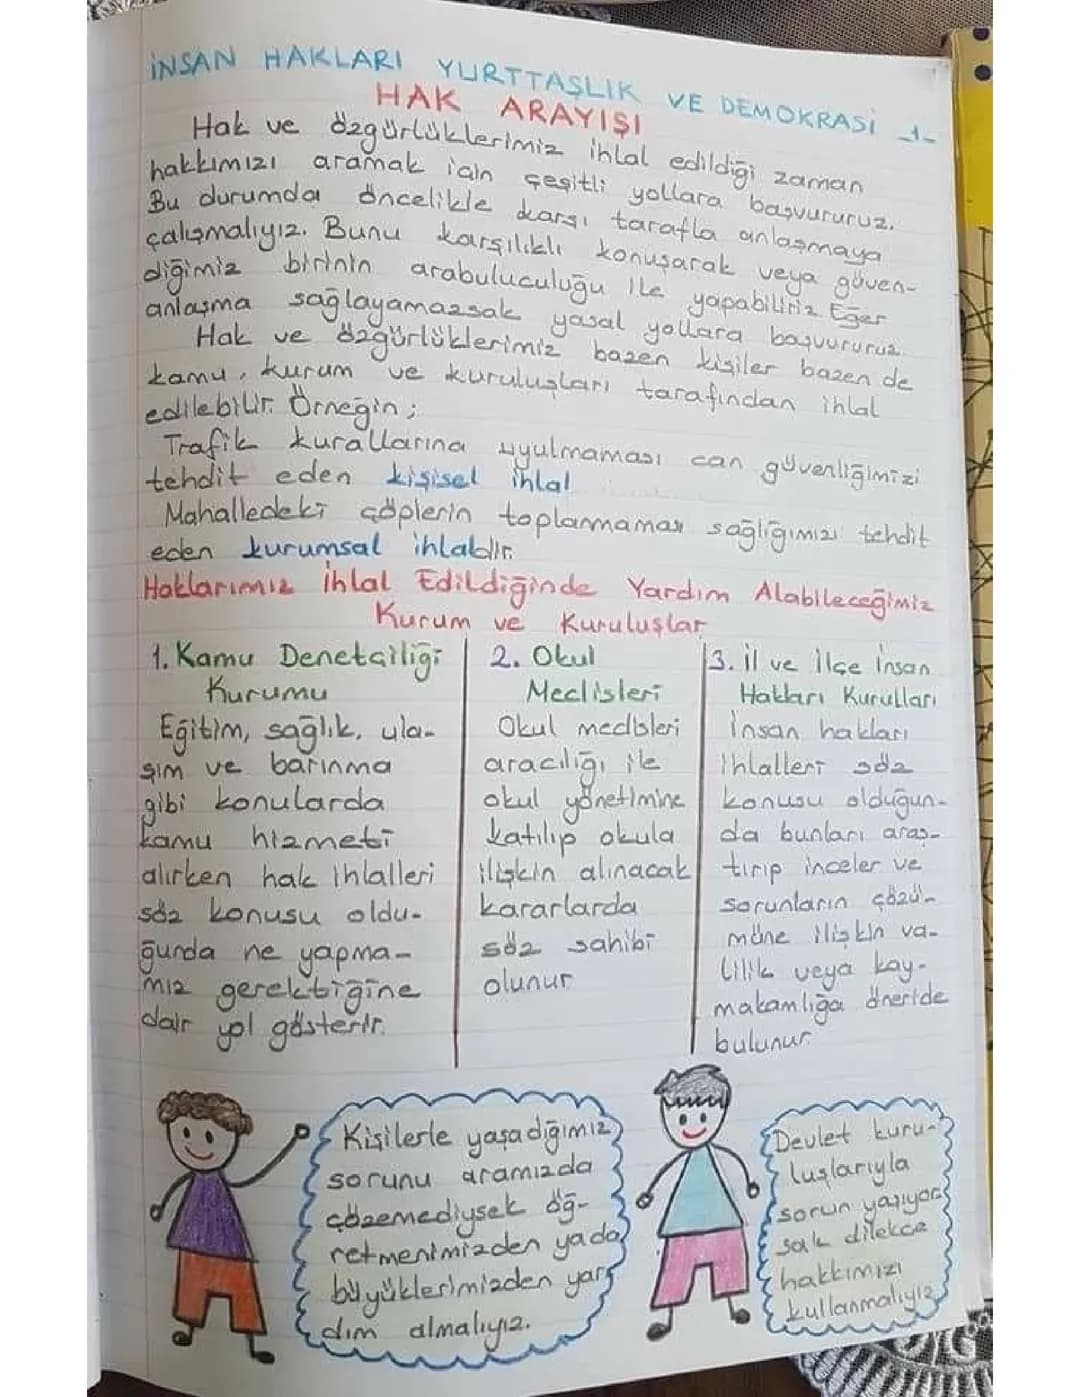 İNSAN HAKLARI YURTTAŞLIK VE DEMOKRASİ -1-
HAK ARAYIŞI
Hak ve özgürlüklerimiz ihlal edildiği zaman
hakkımızı aramak için çeşitli yollara başvururuz.
Bu durumda öncelikle karşı tarafla anlaşmaya
çalışmalıyız. Bunu karşılıklı konuşarak veya güven-
diğimiz birinin arabuluculuğu ile yapabiliriz Eğer
anlaşma sağlayamazsak yasal yollara başvururuz.
Hak ve özgürlüklerimiz bazen kişiler bazen de
kamu, kurum ve kuruluşları tarafından ihlal
edilebilir. Örneğin;
Trafik kurallarına uyulmaması can güvenliğimizi
tehdit eden kişisel ihlal
Mahalledeki çöplerin toplanmaması sağlığımızı tehdit
eden kurumsal ihlaldir.
Haklarımız İhlal Edildiğinde Yardım Alabileceğimiz
Kurum ve Kuruluşlar
1. Kamu Denetçiliği
Kurumu
Eğitim, sağlık, ula-
şım ve barınma
gibi konularda
kamu hizmeti
alırken hak ihlalleri
söz konusu oldu-
ğunda ne yapma-
mız gerektiğine
dair yol gösterir.
2. Okul
Meclisleri
Okul meclisleri
aracılığı ile
okul yönetimine
katılıp okula
ilişkin alınacak
kararlarda
söz sahibi
olunur
3. İl ve İlçe İnsan
Hakları Kurulları
İnsan hakları
ihlalleri söz
konusu olduğun-
da bunları araş-
tırıp inceler ve
sorunların çözü-
müne ilişkin va-
lilik veya kay-
makamlığa öneride
bulunur.
Kişilerle yaşadığımız
sorunu aramızda
çözemediysek öğ-
retmenimizden yada
büyüklerimizden yar-
dım almalıyız.
Devlet kuru-
luşlarıyla
sorun yaşıyor-
sak dilekçe
hakkımızı
kullanmalıyız